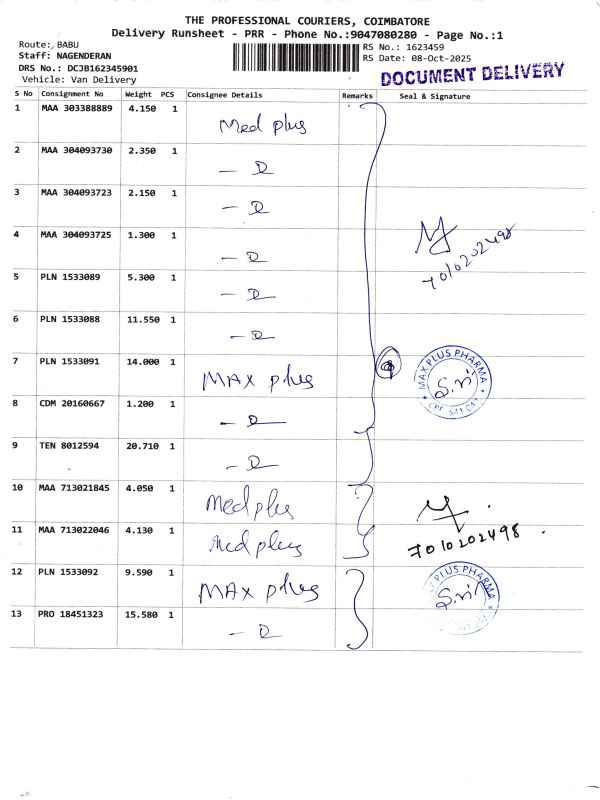 THE PROFESSIONAL COURIERS, COIMBATORE
Delivery Runsheet - PRR - Phone No.:9047080280 - Page No.:1
Route: BABU
RS No.: 1623459
Staff: NAGENDERAN
RS Date: 08-Oct-2025
DRS No.: DCJB162345901
DOCUMENT DELIVERY
Vehicle: Van Delivery
S No Consignment No Weight PCS Consignee Details Remarks Seal & Signature
1 MAA 303388889 4.150 1 Med plus
2 MAA 304093730 2.350 1 - D
3 MAA 304093723 2.150 1 - D
4 MAA 304093725 1.300 1 - D
7010202498
5 PLN 1533089 5.300 1 - D
6 PLN 1533088 11.550 1 - D
7 PLN 1533091 14.000 1 MAX plus
MAX PLUS PHARMA
8 CDM 20160667 1.200 1 - D
9 TEN 8012594 20.710 1 - D
10 MAA 713021845 4.050 1 Med plus
11 MAA 713022046 4.130 1 Med plus
7010202498
12 PLN 1533092 9.590 1 MAX plus
PLUS PHARMA
13 PRO 18451323 15.580 1 - D